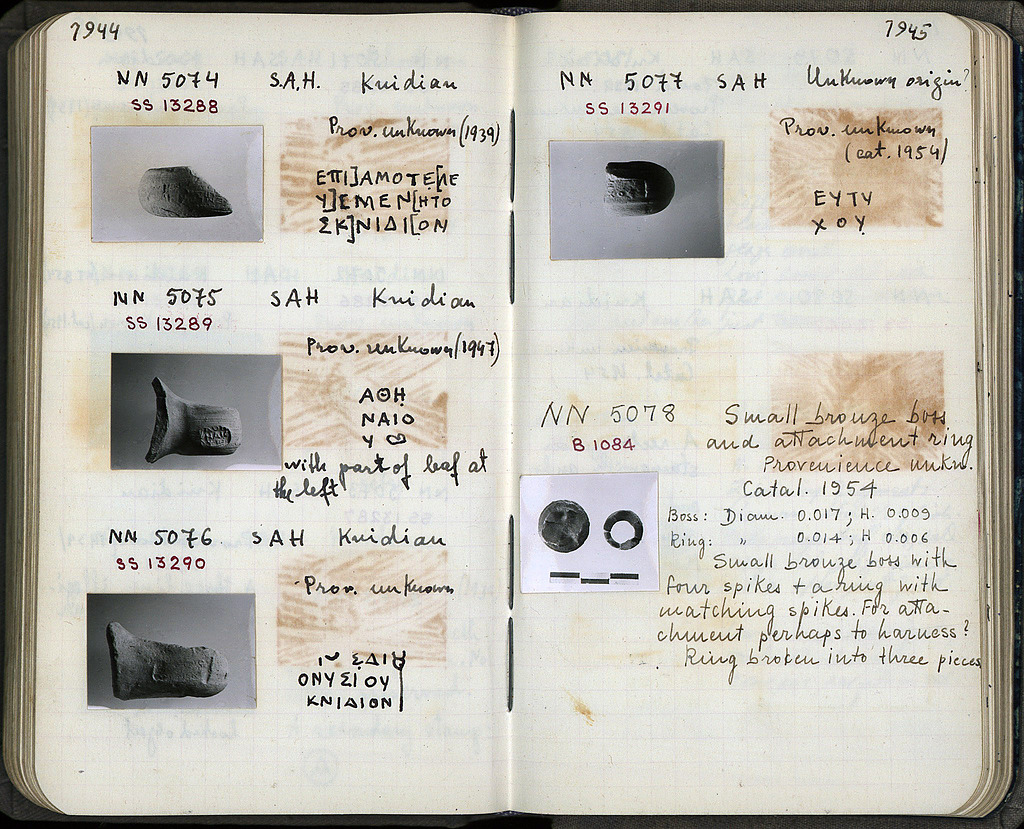 7944
NN 5074 S.A.H. Knidian
SS 13288
Prov. unknown (1939)
ΕΠΙ]ΑΜΟΤΕ[ΛΕ
Υ]ΣΜΕΝ[ΗΤΟ
ΣΚ]ΝΙΔΙ[ΟΝ
NN 5075 SAH Knidian
SS 13289
Prov. unknown (1947)
ΑΘΗ
ΝΑΙΟ
Υ
with part of leaf at
the left
NN 5076. SAH Knidian
SS 13290
Prov. unknown
ΟΝΥΣΙΟΥ
ΚΝΙΔΙΟΝ
7945
NN 5077 SAH Unknown origin?
SS 13291
Prov. unknown
(cat. 1954)
ΕΥΤΥ
ΧΟΥ
NN 5078 Small bronze boss
B 1084 and attachment ring
Provenience unkn.
Catal. 1954
Boss: Diam. 0.017; H. 0.009
Ring: " 0.014; H 0.006
Small bronze boss with
four spikes + a ring with
matching spikes. For atta-
chment perhaps to harness?
Ring broken into three pieces